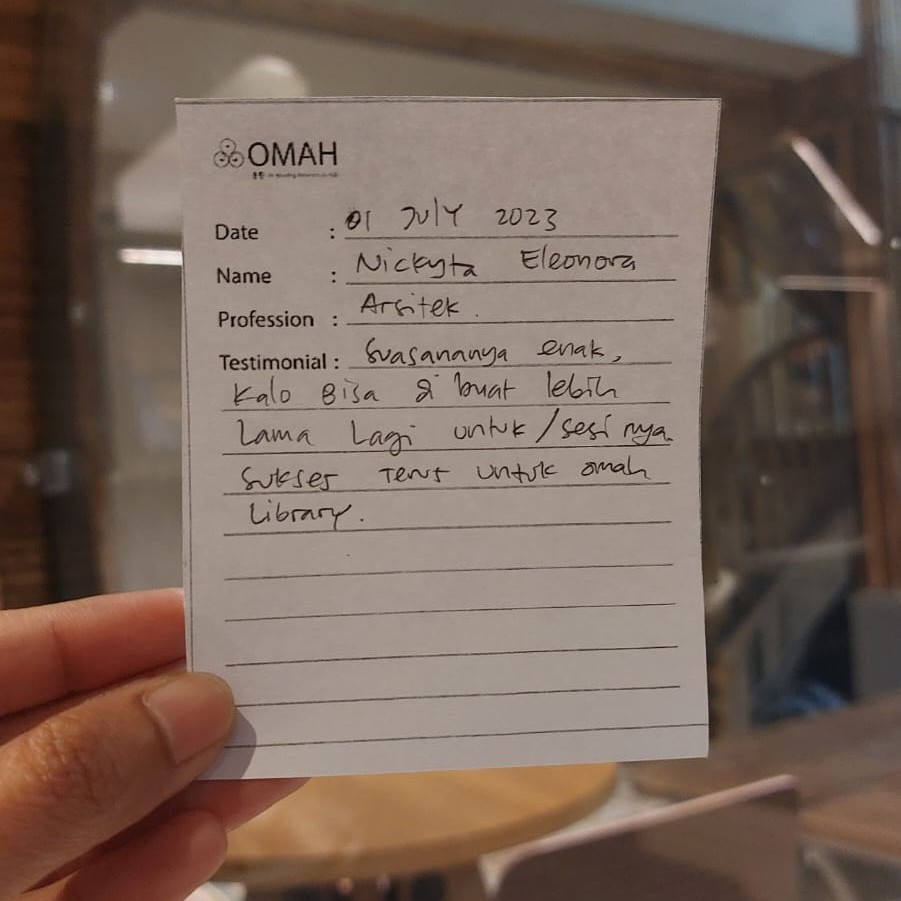 OMAH
Date : 01 JULY 2023
Name : Nickyta Eleonora
Profession : Arsitek.
Testimonial : Suasananya enak,
Kalo Bisa di buat lebih
Lama Lagi untuk/sesi nya.
Sukses Terus untuk omah
Library.